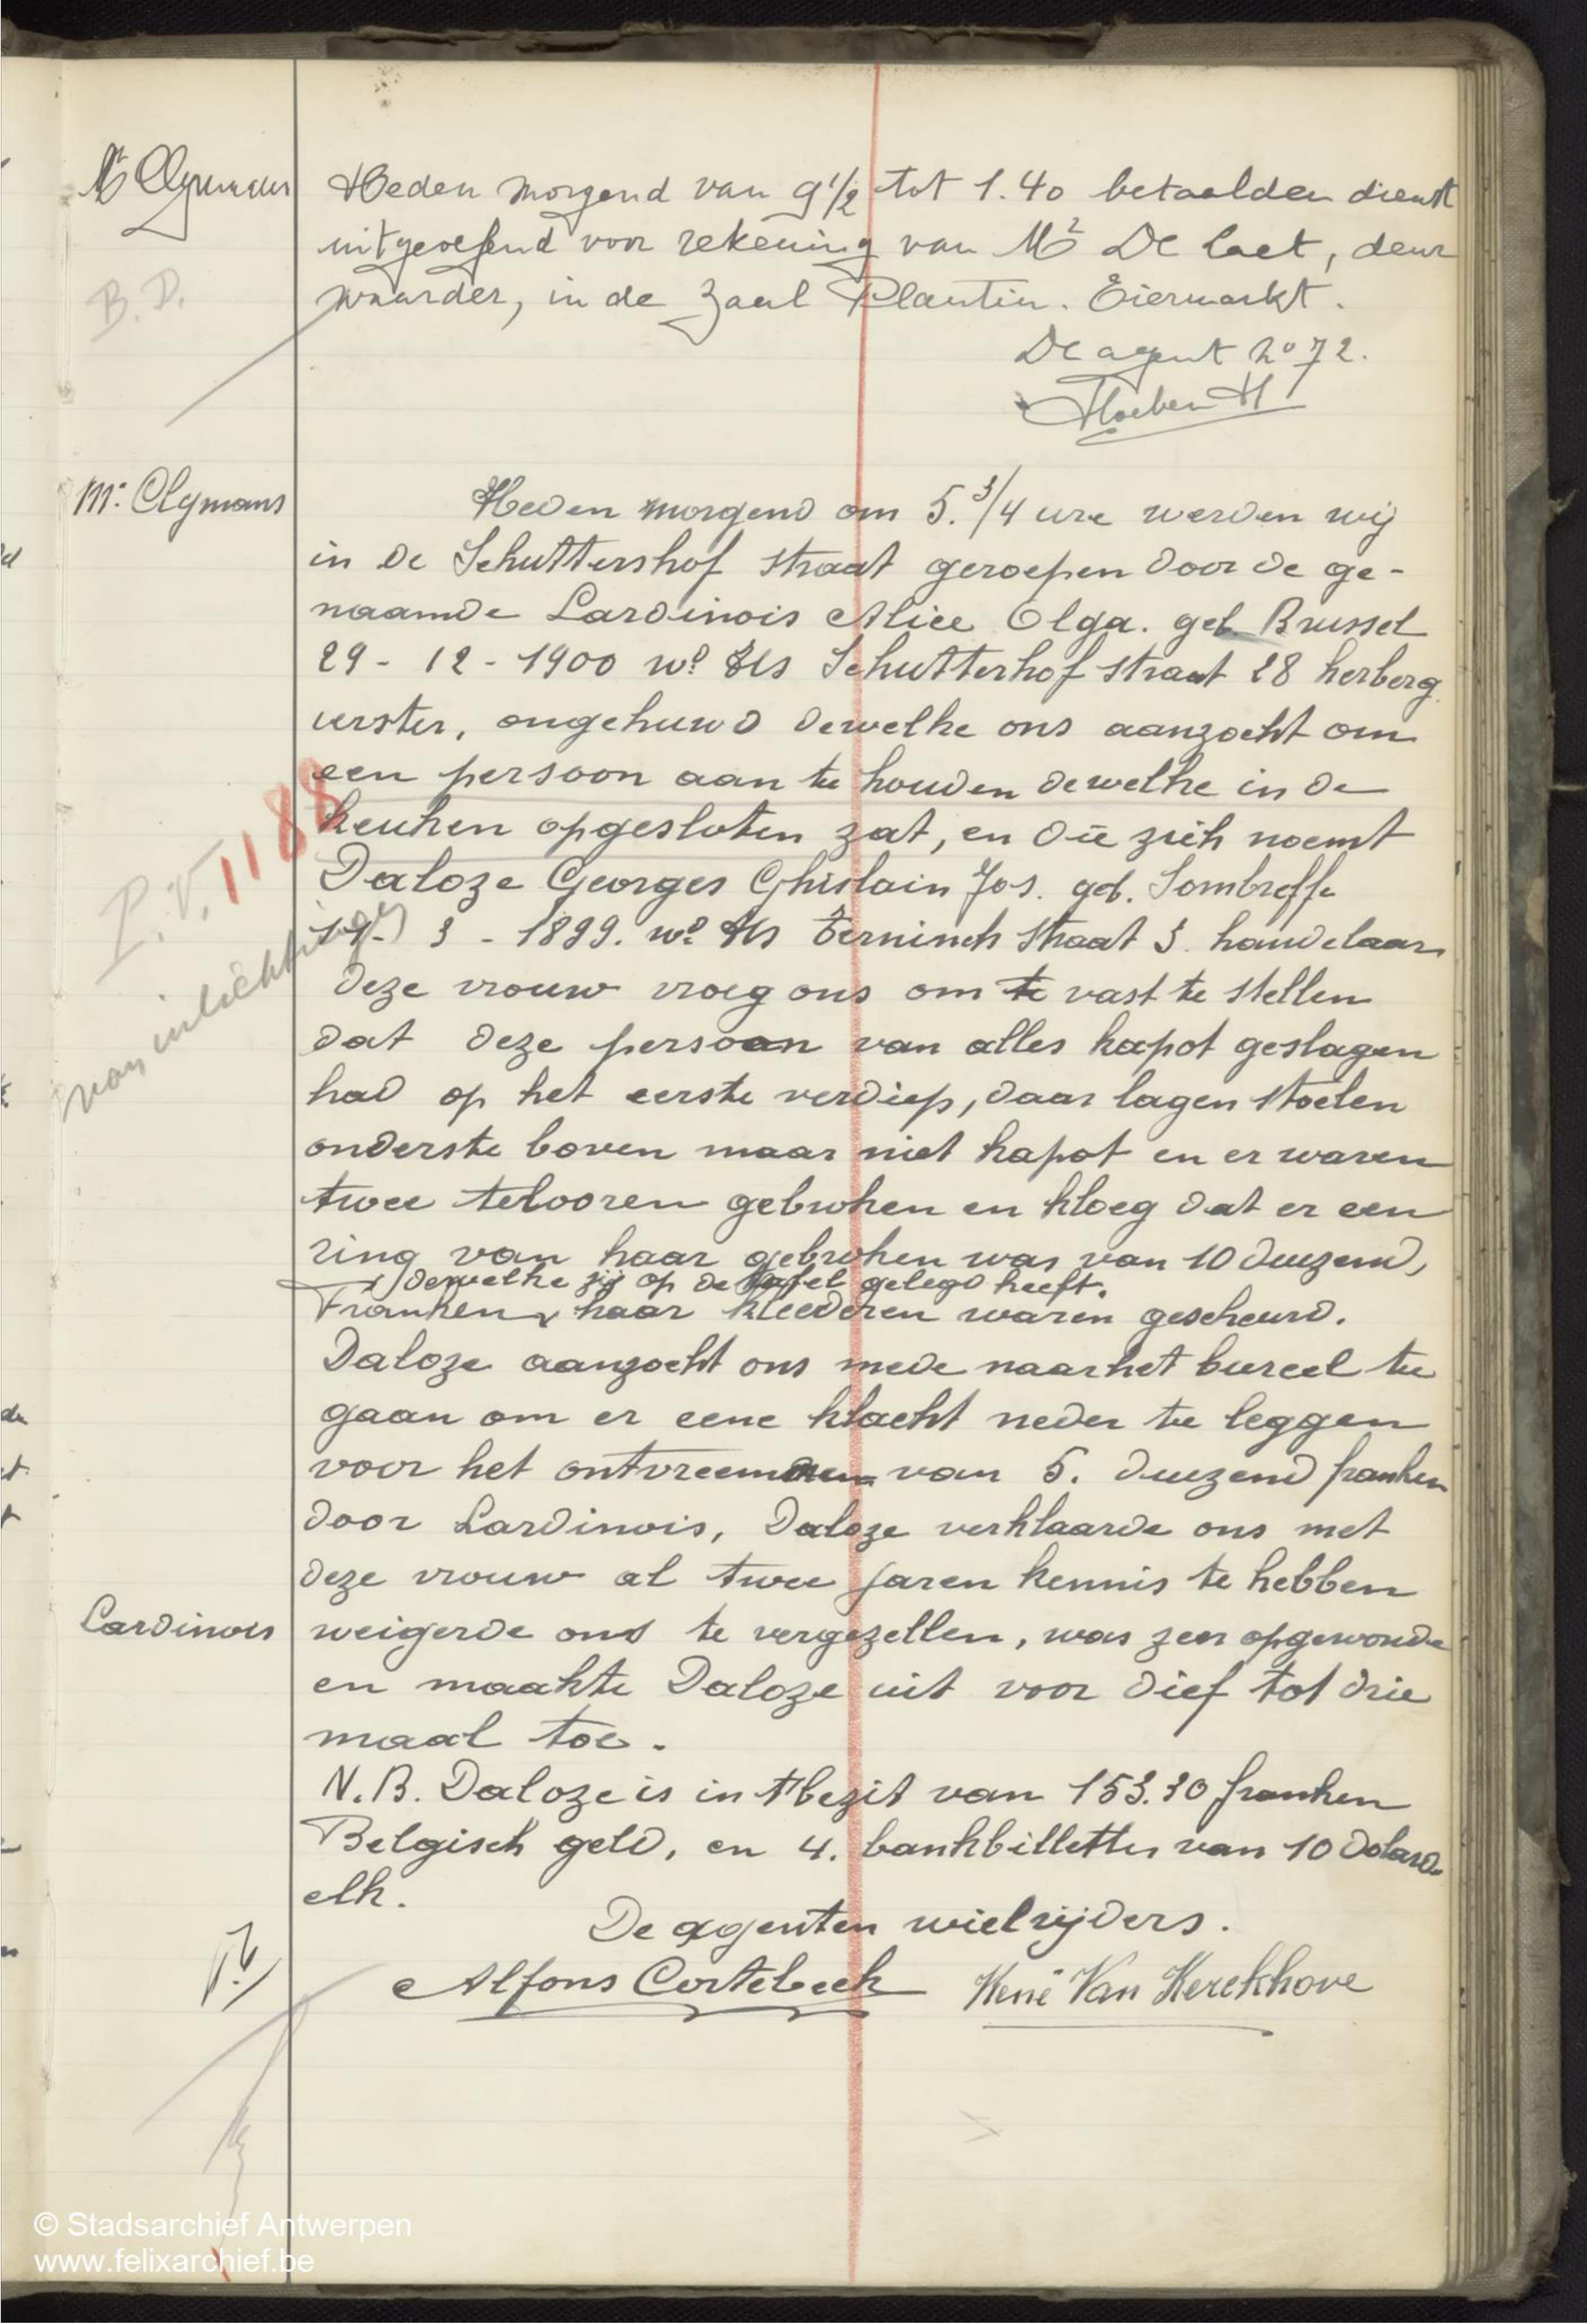 Mr Clymans
Heden morgend van 9 1/2 tot 1.40 betaalden dienst
uitgeoefend voor rekening van Mr De Laet, deur
waarder, in de Zaal Plantin. Eiermarkt.
B.D.
De agent No 72.
Mr. Clymans
Heden morgend om 5. 3/4 ure werden wij
in de Schuttershof straat geroepen door de ge-
naamde Lardinois Alice Olga. geb. Brussel
29 - 12 - 1900 wde Schutterhof straat 28 herberg
ierster, ongehuwd dewelke ons aanzocht om
een persoon aan te houden dewelke in de
keuken opgesloten zat, en die zich noemt
Daloze Georges Ghislain Jos. geb. Sombreffe
19 - 3 - 1899. straat 3. handelaar
P.V. 1188
van inlichtingen
deze vrouw vroeg ons om te vast te stellen
dat deze persoon van alles kapot geslagen
had op het eerste verdiep, daar lagen stoelen
onderste boven maar niet kapot en er waren
twee telooren gebroken en kloeg dat er een
ring van haar gebroken was van 10 duizend,
dewelke zij op de tafel gelegd heeft.
Franken haar kleederen waren gescheurd.
Daloze aanzocht ons mede naar het bureel te
gaan om er eene klacht neder te leggen
voor het ontvreemden van 5. duizend franken
door Lardinois, Daloze verklaarde ons met
deze vrouw al twee jaren kennis te hebben
Lardinois
weigerde ons te vergezellen, was zeer opgewonde
en maakte Daloze uit voor dief tot drie
maal toe.
N.B. Daloze is in 't bezit van 153.30 franken
Belgisch geld, en 4. bankbilletten van 10 dolars
elk.
De agenten wielrijders.
Alfons Cortebeek René Van Kerckhove
© Stadsarchief Antwerpen
www.felixarchief.be